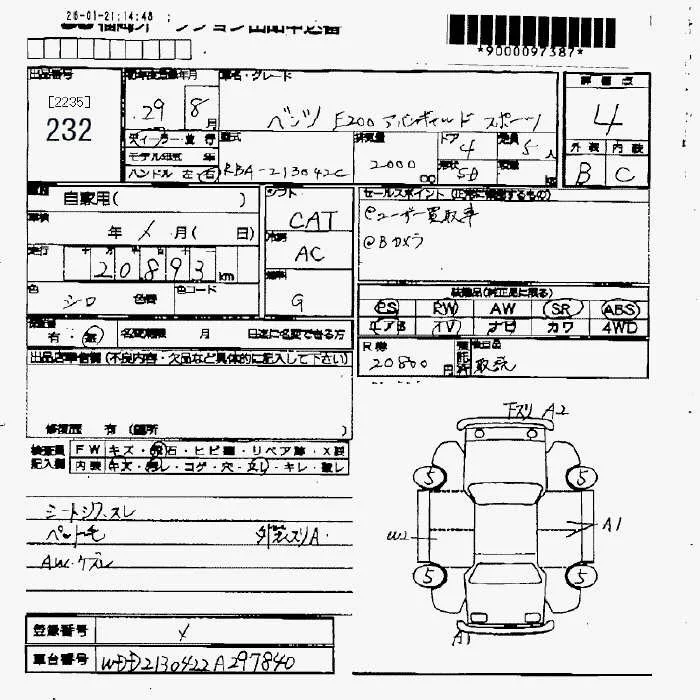 26-01-21;14:48
*9000097387*
出品番号
[2235]
232
初年度登録年月
29 8月
車名・グレード
ベンツ E200 アバンギャルド スポーツ
評価点
4
外装 内装
B C
ディーラー・並行
モデル年式 年
ハンドル 左・右
型式
RBA-213042C
排気量
2000 cc
ドア
4
形状
SD
定員
5人
自家用( )
車検
年 X 月( 日)
走行
20893 km
色
シロ 色替
色コード
シフト
CAT
冷房
AC
燃料
G
セールスポイント
@ユーザー買取車
@Bカメラ
装備品(純正品に限る)
PS PW AW SR ABS
エアB TV ナビ カワ 4WD
R券
20800円
取説
有・無 名変期限 月 日迄に名変できる方
出品店申告欄(不良内容・欠品など具体的に記入して下さい)
修復歴 有(箇所 )
検査員記入欄
FW キズ・飛石・ヒビ・リペア跡・X
内装 キズ・コゲ・穴・キレ
シートシワ.スレ
ペット毛
AW.ケズレ
下スリ A2
5 5
W2
A1
5 5
A1
登録番号 X
車台番号 WDD2130422A297840